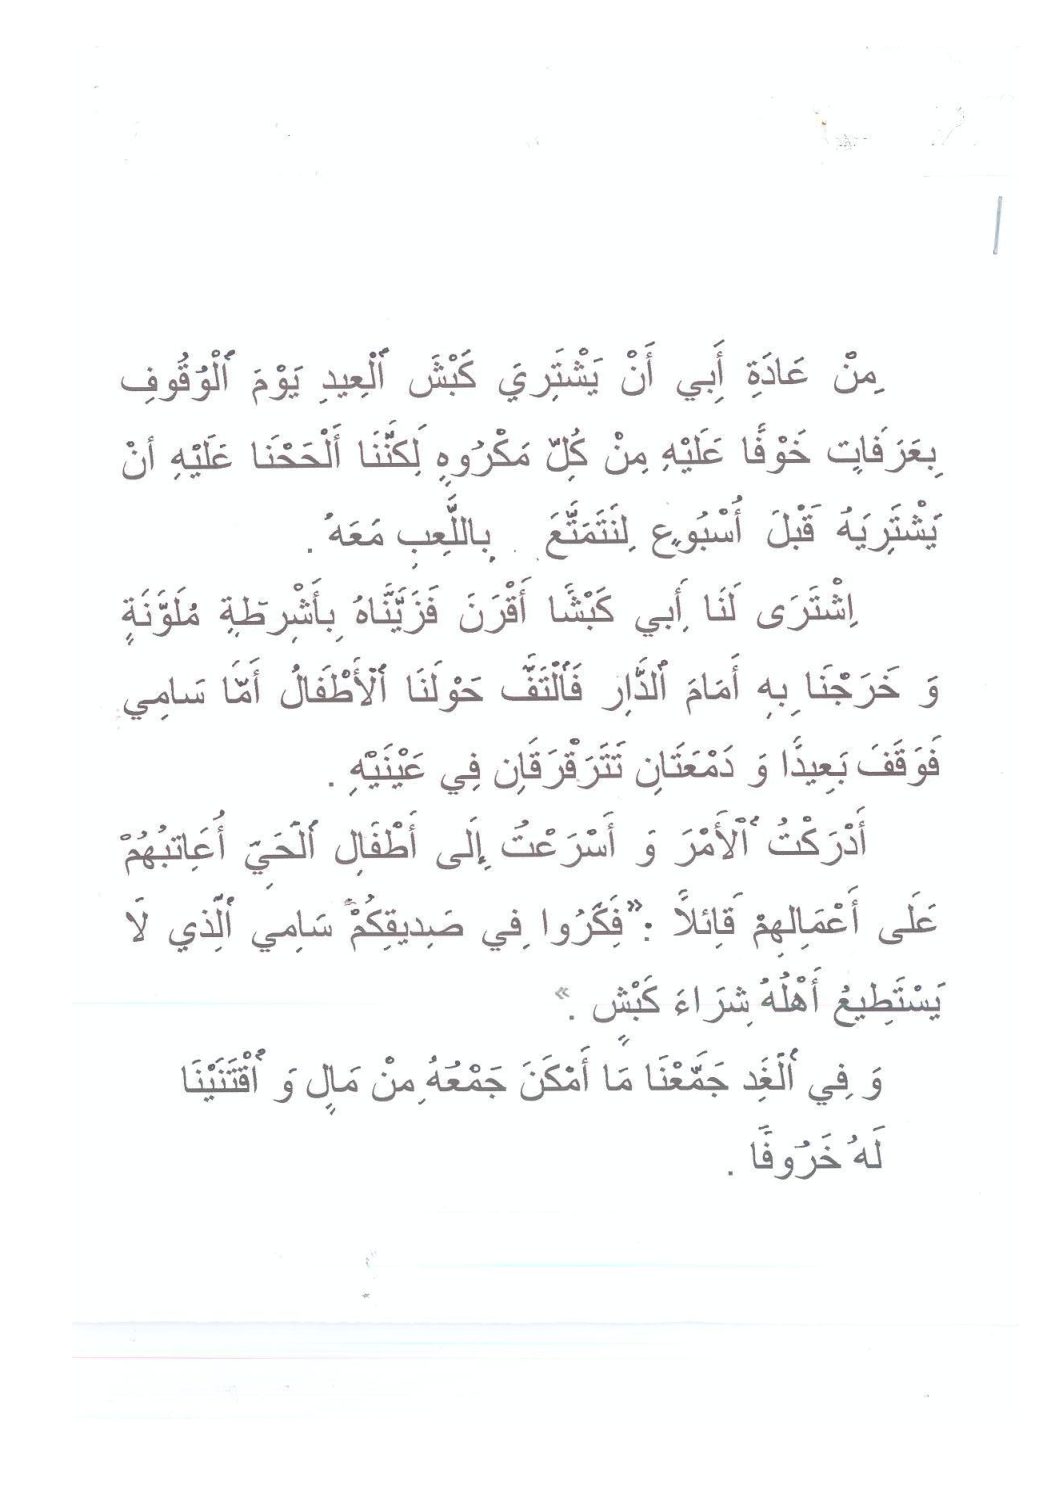 مِنْ عَادَةِ أَبِي أَنْ يَشْتَرِيَ كَبْشَ ٱلْعِيدِ يَوْمَ ٱلْوُقُوفِ
بِعَرَفَاتٍ خَوْفًا عَلَيْهِ مِنْ كُلِّ مَكْرُوهٍ لَكِنَّنَا أَلْحَحْنَا عَلَيْهِ أنْ
يَشْتَرِيَهُ قَبْلَ أُسْبُوعٍ لِنَتَمَتَّعَ بِاللَّعِبِ مَعَهُ .
اِشْتَرَى لَنَا أَبِي كَبْشًا أَقْرَنَ فَزَيَّنَّاهُ بِأَشْرِطَةٍ مُلَوَّنَةٍ
وَ خَرَجْنَا بِهِ أَمَامَ ٱلدَّارِ فَٱلْتَفَّ حَوْلَنَا ٱلْأَطْفَالُ أَمَّا سَامِي
فَوَقَفَ بَعِيدًا وَ دَمْعَتَانِ تَتَرَقْرَقَانِ فِي عَيْنَيْهِ .
أَدْرَكْتُ ٱلْأَمْرَ وَ أَسْرَعْتُ إِلَى أَطْفَالِ ٱلْحَيِّ أُعَاتِبُهُمْ
عَلَى أَعْمَالِهِمْ قَائِلاً :"فَكِّرُوا فِي صَدِيقِكُمْ سَامِي ٱلَّذِي لَا
يَسْتَطِيعُ أَهْلُهُ شِرَاءَ كَبْشٍ . »
وَ فِي ٱلْغَدِ جَمَّعْنَا مَا أَمْكَنَ جَمْعُهُ مِنْ مَالٍ وَ ٱقْتَنَيْنَا
لَهُ خَرُوفًا .